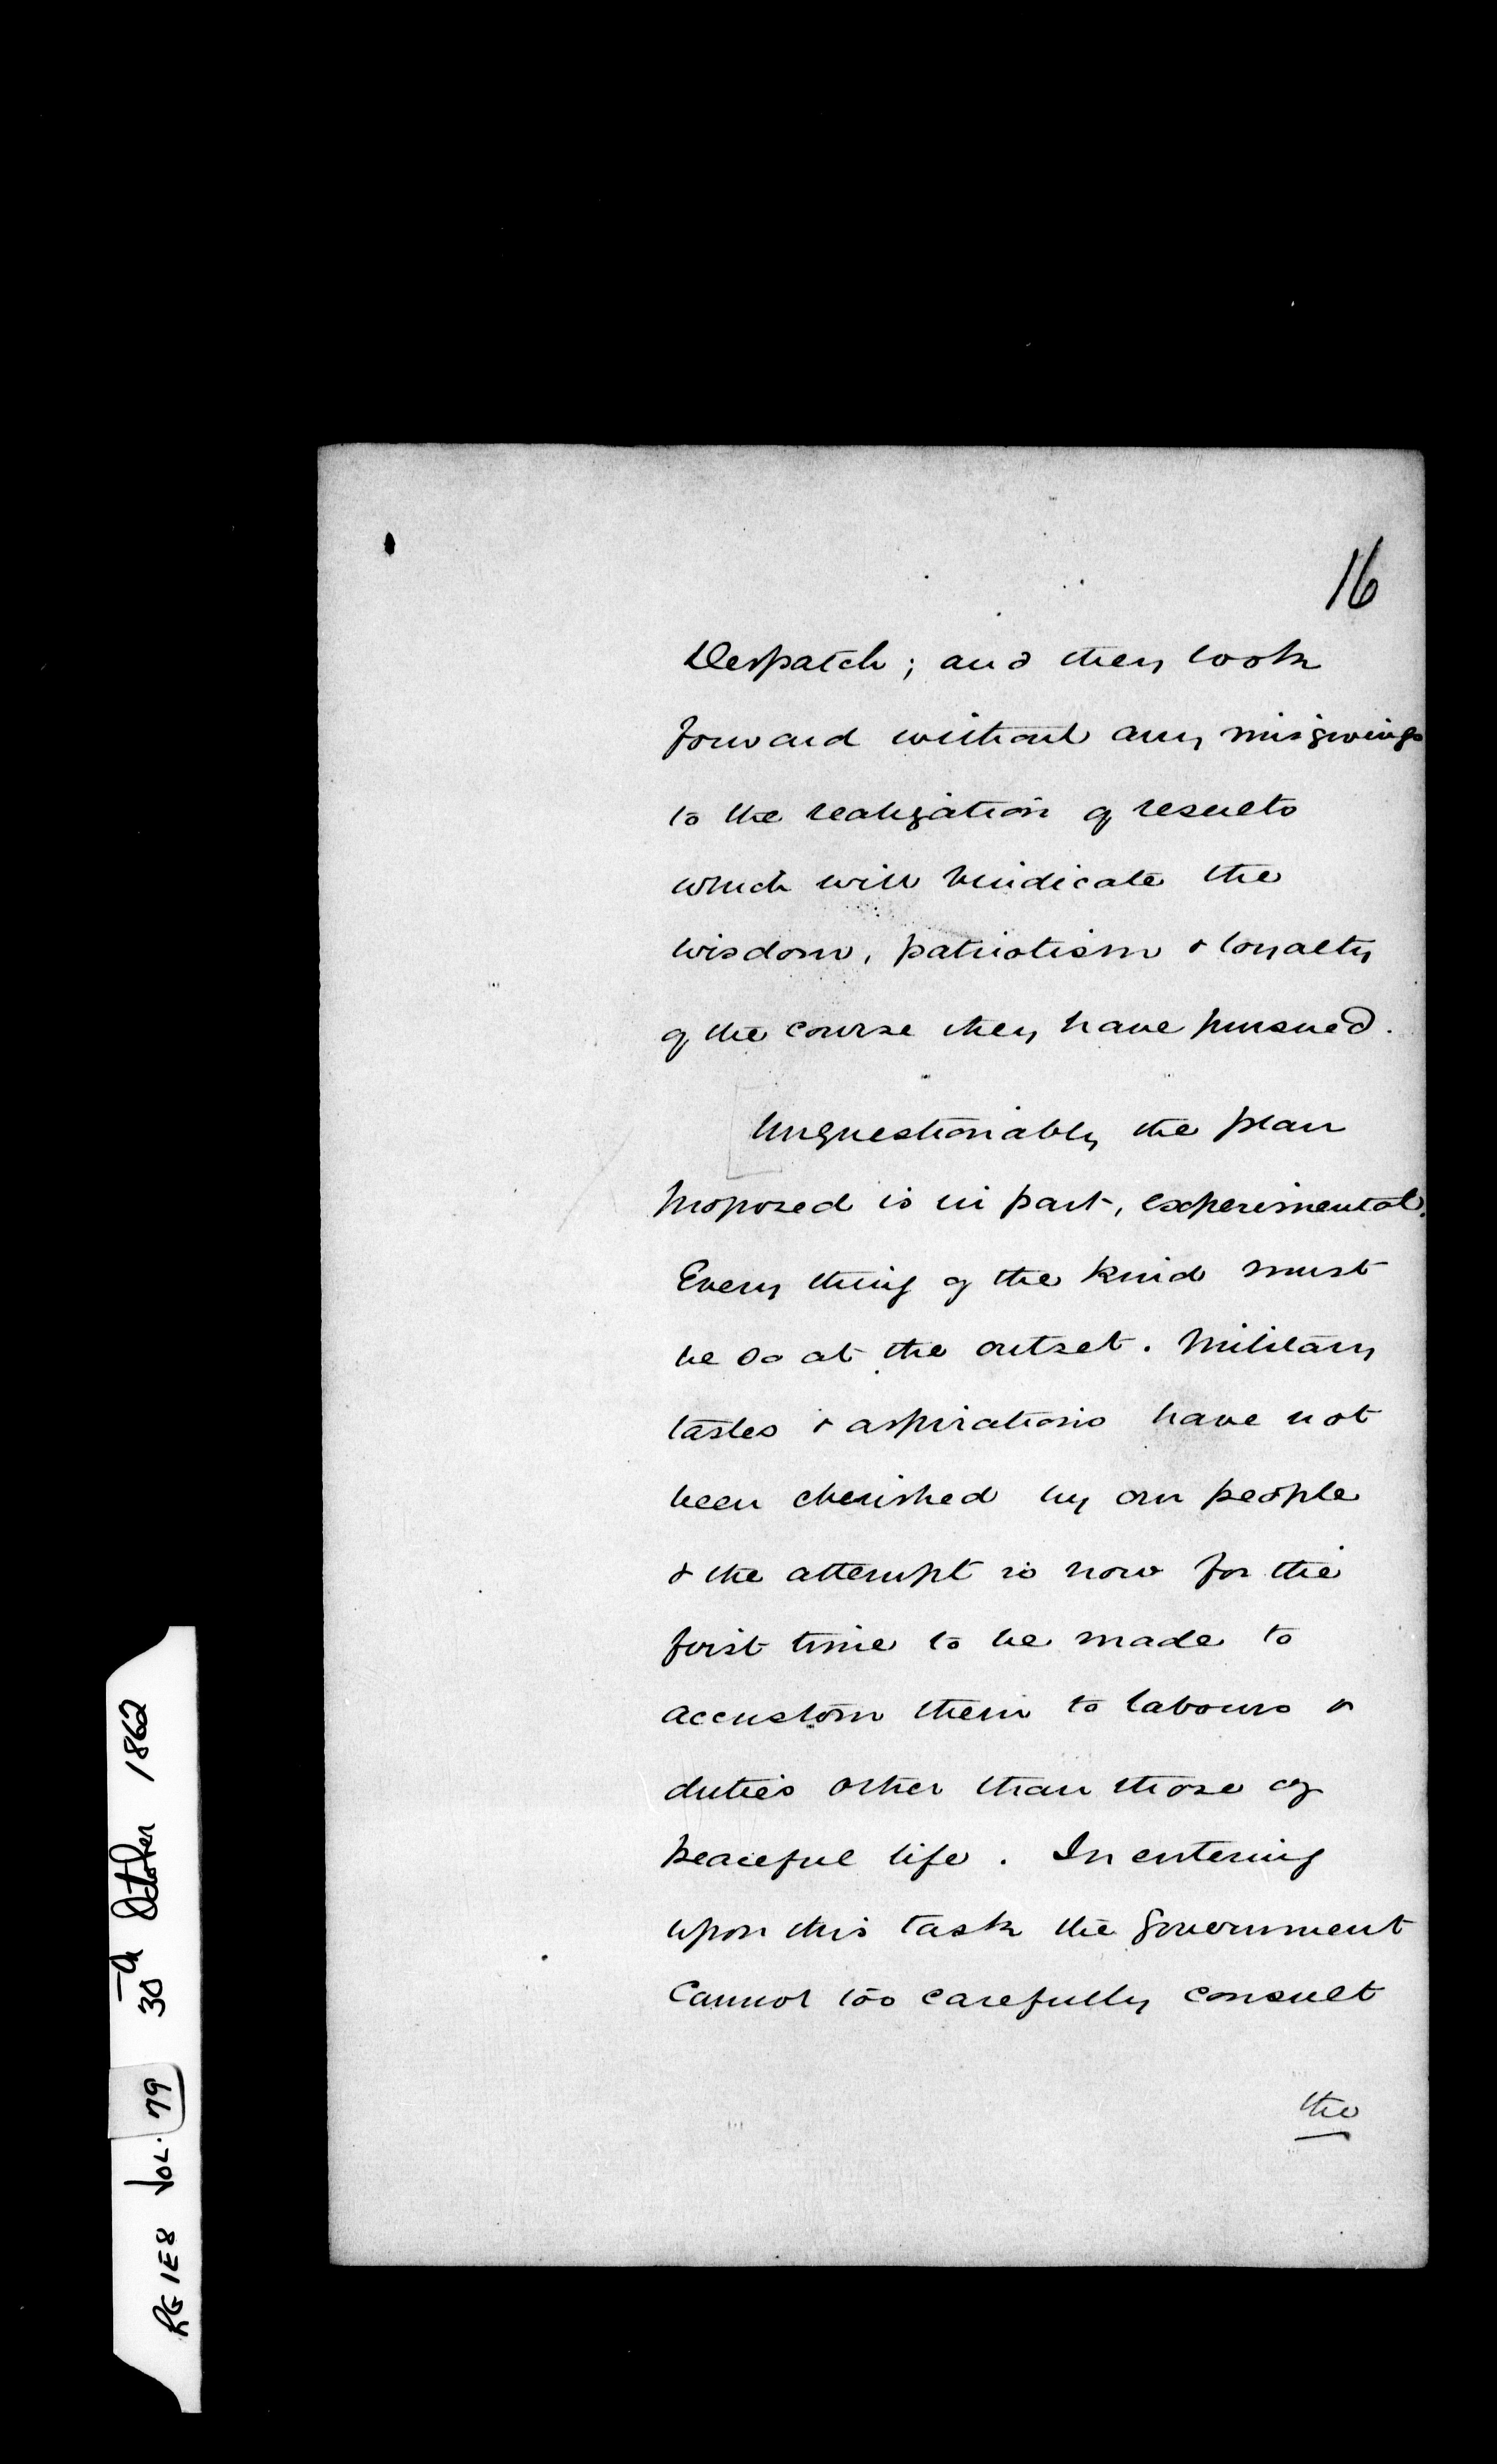 16
Despatch; and they look
forward without any misgivings
to the realization of results
which will vindicate the
wisdom, patriotism & loyalty
of the course they have pursued.
Unquestionably the plan
proposed is in part, experimental.
Every thing of the kind must
be so at the outset. Military
tastes & aspirations have not
been cherished by our people
& the attempt is now for the
first time to be made to
accustom them to labours &
duties other than those of
peaceful life. In entering
upon this task the Government
Cannot too carefully consult
the
RG 1E8 VOL. 79 30th October 1862